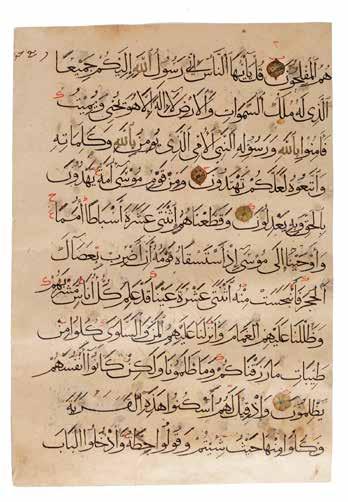 هم المفلحون قل يايها الناس اني رسول الله اليكم جميعا
الذي له ملك السموات والارض لا اله الا هو يحيي ويميت
فامنوا بالله ورسوله النبي الامي الذي يومن بالله وكلماته
واتبعوه لعلكم تهتدون ومن قوم موسى امة يهدون
بالحق وبه يعدلون وقطعناهم اثنتي عشرة اسباطا امما
واوحينا الى موسى اذ استسقاه قومه ان اضرب بعصاك
الحجر فانبجست منه اثنتي عشرة عينا قد علم كل اناس مشربهم
وظللنا عليهم الغمام وانزلنا عليهم المن والسلوى كلوا من
طيبات ما رزقناكم وما ظلمونا ولكن كانوا انفسهم
يظلمون واذ قيل لهم اسكنوا هذه القرية
وكلوا منها حيث شيتم وقولوا حطة وادخلوا الباب